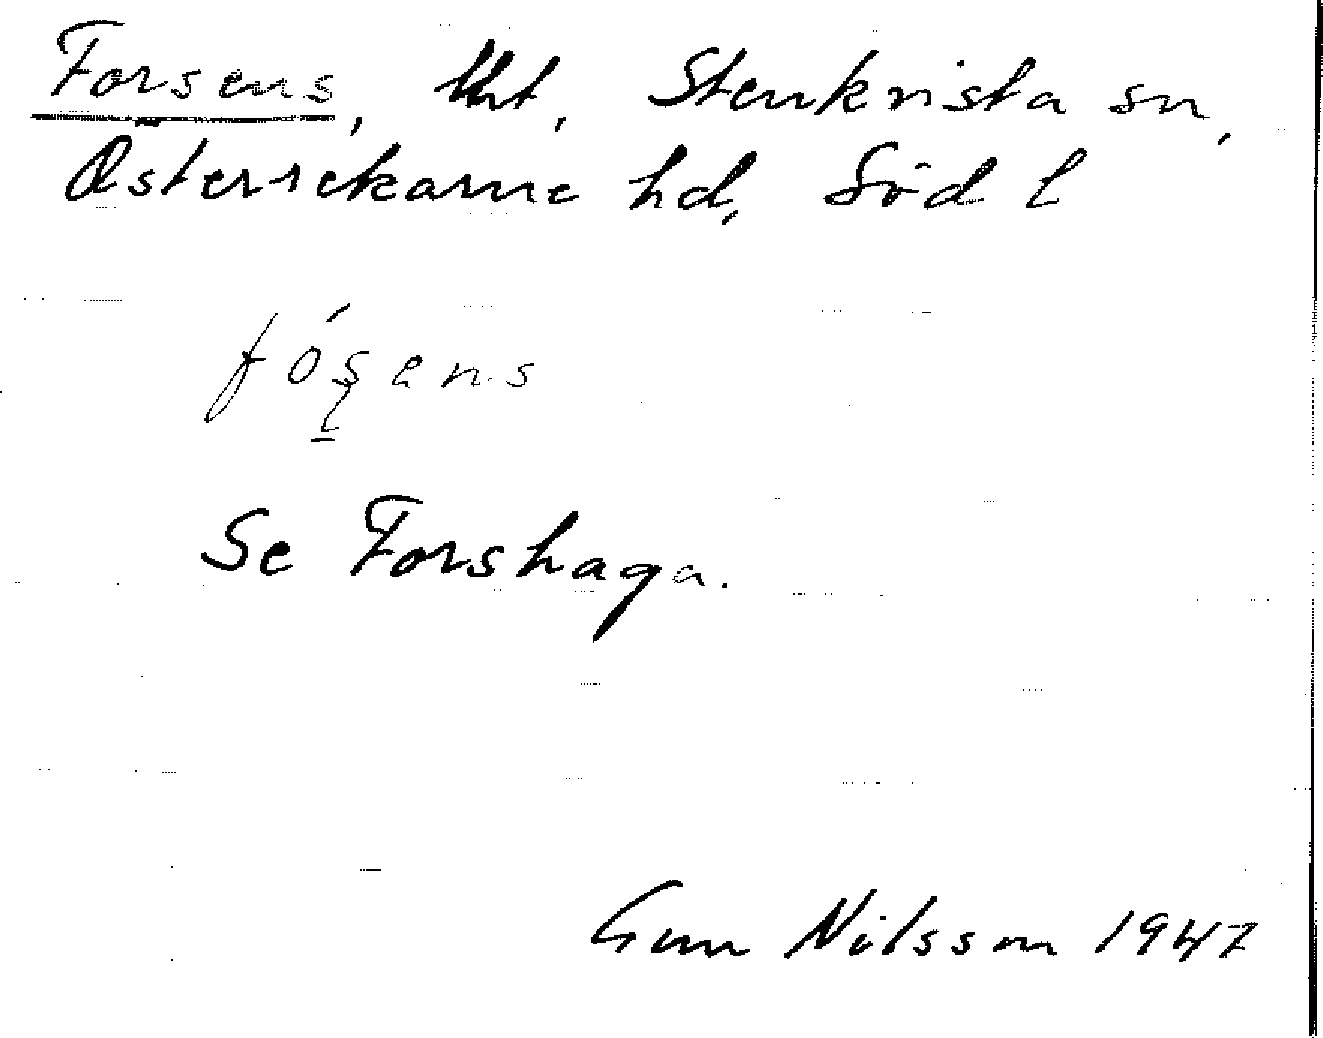 Forsens, Stenkvista sn,
Österrekarne hd, Söd l
Se Forshaga.
Gun Nilsson 1947